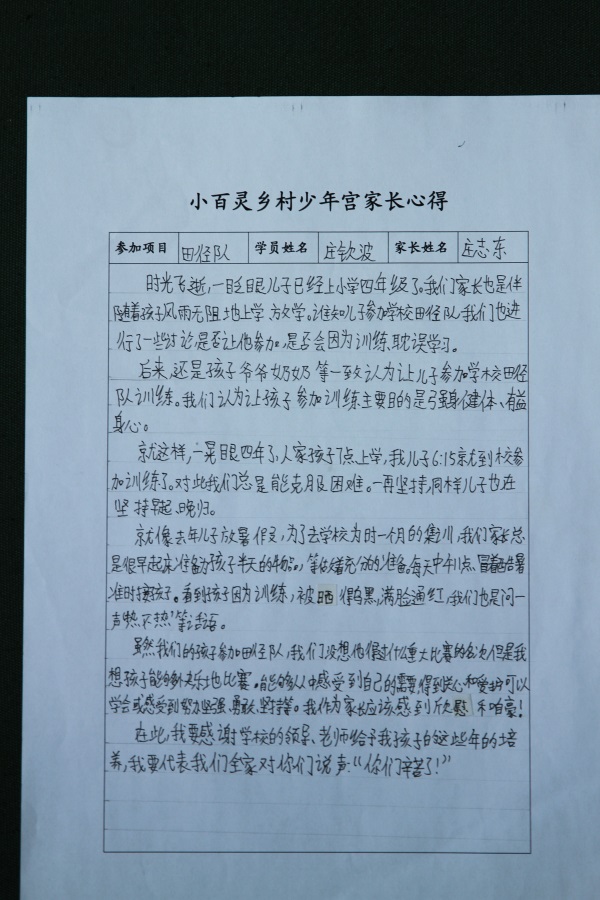 小百灵乡村少年宫家长心得
参加项目 田径队 学员姓名 庄钦波 家长姓名 庄志东
时光飞逝,一眨眼儿子已经上小学四年级了。我们家长也是伴
随着孩子风雨无阻地上学、放学。谁知儿子参加学校田径队,我们也进
行了一些讨论是否让他参加,是否会因为训练耽误学习。
后来,还是孩子爷爷奶奶等一致认为让儿子参加学校田径
队训练。我们认为让孩子参加训练主要目的是强身健体、有益
身心。
就这样,一晃眼四年了,人家孩子7点上学,我儿子6:15就到校参
加训练了。对此我们总是能克服困难。一再坚持,同样儿子也在
坚持早起、晚归。
就像去年儿子放暑假,为了去学校为时一个月的集训,我们家长总
是很早起床准备孩子半天的,等做着充分的准备。每天中午11点、冒着酷暑
准时接孩子。看到孩子因为训练,被晒得乌黑,满脸通红,我们也是问一
声"热不热"等话语。
虽然我们的孩子参加田径队,我们没想他得过什么重大比赛的名次,但是我
想孩子能够快乐地比赛,能够从中感受到自己的需要,得到关心和爱护,可以
学会或感受到努力、坚强、勇敢、坚持等。我作为家长应该感到欣慰和自豪!
在此,我要感谢学校的领导、老师给予我孩子的这些年的培
养,我要代表我们全家对你们说声:"你们辛苦了!"